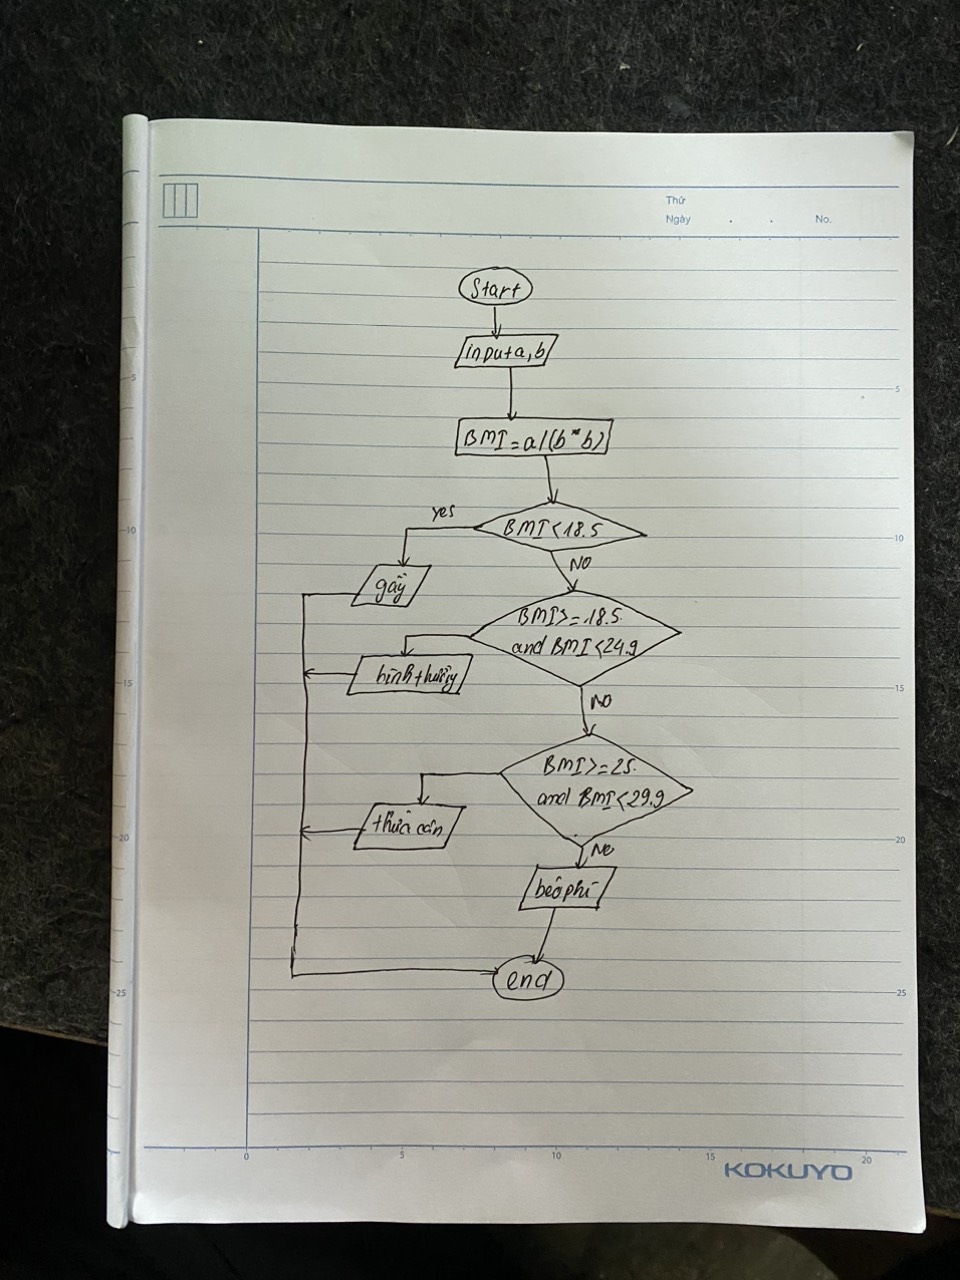 Thứ
Ngày . . No.
Start
input a, b
BMI = a / (b * b)
BMI < 18.5
yes
gầy
NO
BMI >= 18.5
and BMI < 24.9
bình thường
NO
BMI >= 25.
and BMI < 29.9
thừa cân
No
béo phì
end
5
10
15
20
25
5
10
15
20
25
0
5
10
15
20
KOKUYO